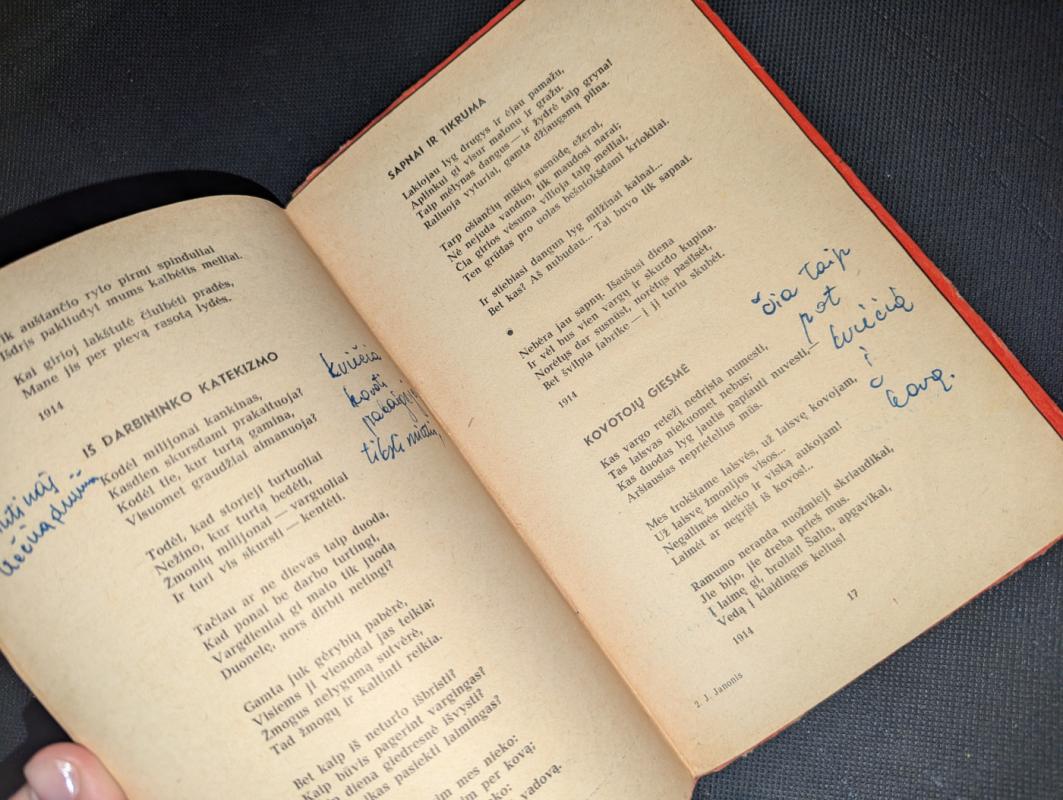 ik auštančio ryto pirmi spinduliai
Išdrįs pakliudyt mums kalbėtis meiliai.
Kai girioj lakštutė čiulbėti pradės,
Mane jis per pievą rasotą lydės.
1914
IŠ DARBININKO KATEKIZMO
Kodėl milijonai kankinas,
Kasdien skursdami prakaituoja?
Kodėl tie, kur turtą gamina,
Visuomet graudžiai aimanuoja?
Todėl, kad storieji turtuoliai
Nežino, kur turtą bedėti,
Žmonių milijonai — varguoliai
Ir turi vis skursti — kentėti.
Tačiau ar ne dievas taip duoda,
Kad ponai be darbo turtingi,
Vargdieniai gi mato tik juodą
Duonelę, nors dirbti netingi?
Gamta juk gėrybių pabėrė,
Visiems ji vienodai jas teikia;
Žmogus nelygumą sutvėrė,
Tad žmogų ir kaltinti reikia.
Bet kaip iš neturto išbristi?
Kaip būvis pagerint vargingas?
diena giedresnė išvysti?
kas pasiekti laimingas?
im mes nieko:
im per kovą;
ko:
vadovą.
kviečia
kovoti
SAPNAI IR TIKRUMA
Lakiojau lyg drugys ir ėjau pamažu,
Aplinkui gi visur malonu ir gražu.
Taip mėlynas dangus — ir žydrė taip gryna!
Raliuoja vyturiai, gamta džiaugsmų pilna.
Tarp ošiančių miškų susnūdę ežerai,
Nė nejuda vanduo, tik maudosi narai;
Čia girios vėsuma vilioja taip meiliai,
Ten grūdas pro uolas bešniokšdami kriokliai.
Ir stiebiasi dangun lyg milžinai kalnai...
Bet kas? Aš nubudau... Tai buvo tik sapnai.
Nebėra jau sapnų. Išaušusi diena
Ir vėl bus vien vargų ir skurdo kupina.
Norėtųs dar susnūst, norėtųs pasilsėt,
Bet švilpia fabrike — į jį turiu skubėt.
1914
KOVOTOJŲ GIESMĖ
Kas vargo retežį nedrįsta numesti,
Tas laisvas niekuomet nebus;
Kas duodas lyg jautis papiauti nuvesti,—
Aršiausias neprietelius mūs.
Mes trokštame laisvės, už laisvę kovojam,
Už laisvę žmonijos visos...
Negailimės nieko ir viską aukojam!
Laimėt ar negrįžt iš kovos!..
Ramumo neranda nuožmieji skriaudikai,
Jie bijo, jie dreba prieš mus.
Į laimę gi, broliai! Šalin, apgavikai,
Vedą į klaidingus kelius!
1914
17
2. J. Janonis
čia taip
pat
kviečia
į
kovą.